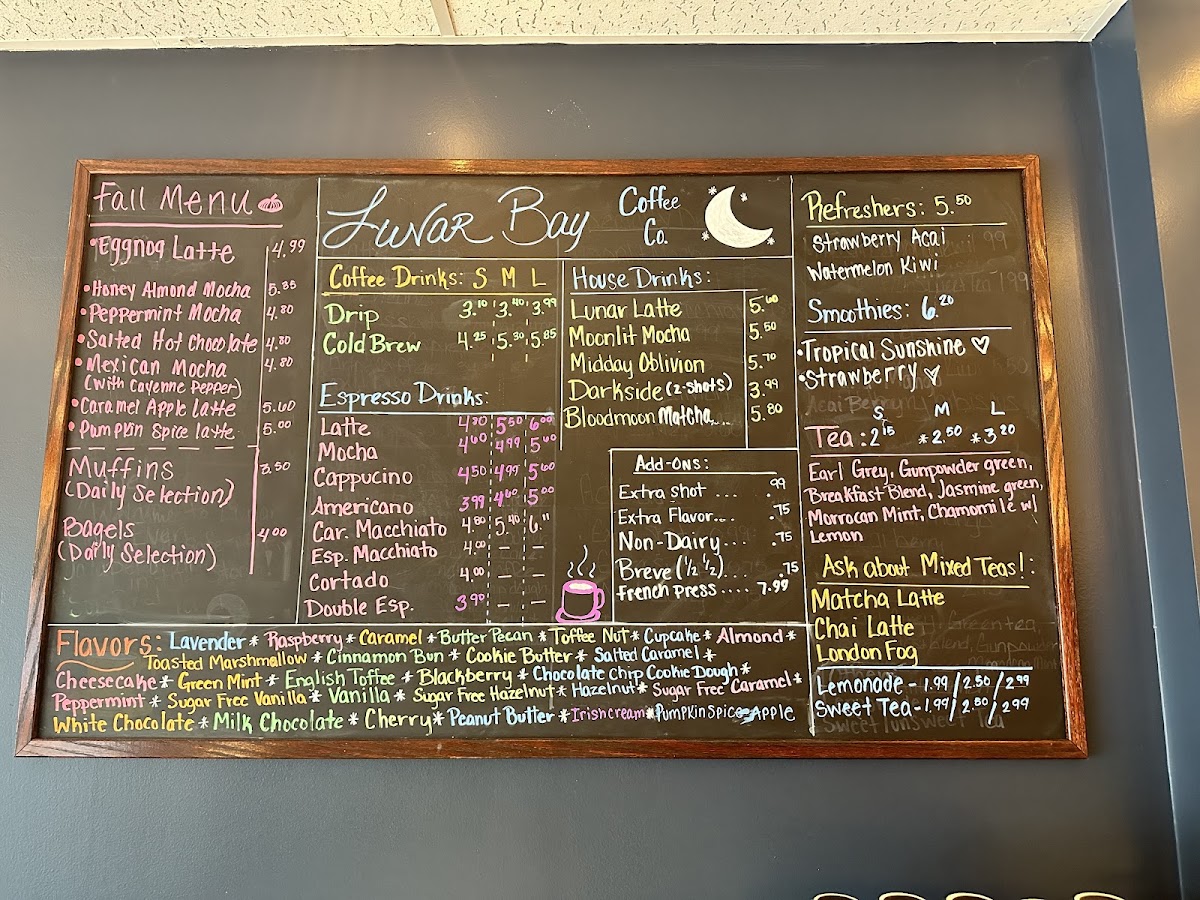 Fall Menu
•Eggnog Latte 4.99
•Honey Almond Mocha 5.35
•Peppermint Mocha 4.80
•Salted Hot Chocolate 4.80
•Mexican Mocha 4.80
(With Cayenne Pepper)
•Caramel Apple latte 5.60
•Pumpkin Spice latte 5.00
Muffins 3.50
(Daily Selection)
Bagels 4.00
(Daily Selection)
Lunar Bay Coffee Co.
Coffee Drinks: S M L
Drip 3.10 3.40 3.99
Cold Brew 4.25 5.30 5.85
Espresso Drinks:
Latte 4.80 5.50 6.00
Mocha 4.60 4.99 5.60
Cappucino 4.50 4.99 5.60
Americano 3.99 4.60 5.00
Car. Macchiato 4.80 5.40 6.11
Esp. Macchiato 4.00 — —
Cortado 4.00 — —
Double Esp. 3.90 — —
House Drinks:
Lunar Latte 5.60
Moonlit Mocha 5.50
Midday Oblivion 5.70
Darkside (2-shots) 3.99
Bloodmoon Matcha... 5.80
Add-Ons:
Extra shot .... .99
Extra Flavor... .75
Non-Dairy... .75
Breve (1/2 1/2).... .75
french press .... 7.99
Refreshers: 5.50
Strawberry Acai
Watermelon Kiwi
Smoothies: 6.20
•Tropical Sunshine ♡
•Strawberry ♡
S M L
Tea: 2.15 *2.50 *3.20
Earl Grey, Gunpowder green,
Breakfast Blend, Jasmine green,
Morrocan Mint, Chamomile w/
Lemon
Ask about Mixed Teas!:
Matcha Latte
Chai Latte
London Fog
Lemonade - 1.99/2.50/2.99
Sweet Tea - 1.99/2.50/2.99
Flavors: Lavender * Raspberry * Caramel * Butter Pecan * Toffee Nut * Cupcake * Almond *
Toasted Marshmallow * Cinnamon Bun * Cookie Butter * Salted Caramel *
Cheesecake * Green Mint * English Toffee * Blackberry * Chocolate Chip Cookie Dough *
Peppermint * Sugar Free Vanilla * Vanilla * Sugar Free Hazelnut * Hazelnut * Sugar Free Caramel *
White Chocolate * Milk Chocolate * Cherry * Peanut Butter * Irish cream * Pumpkin Spice - Apple